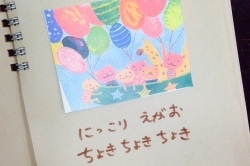 にっこり えがお
ちょき ちょき ちょき